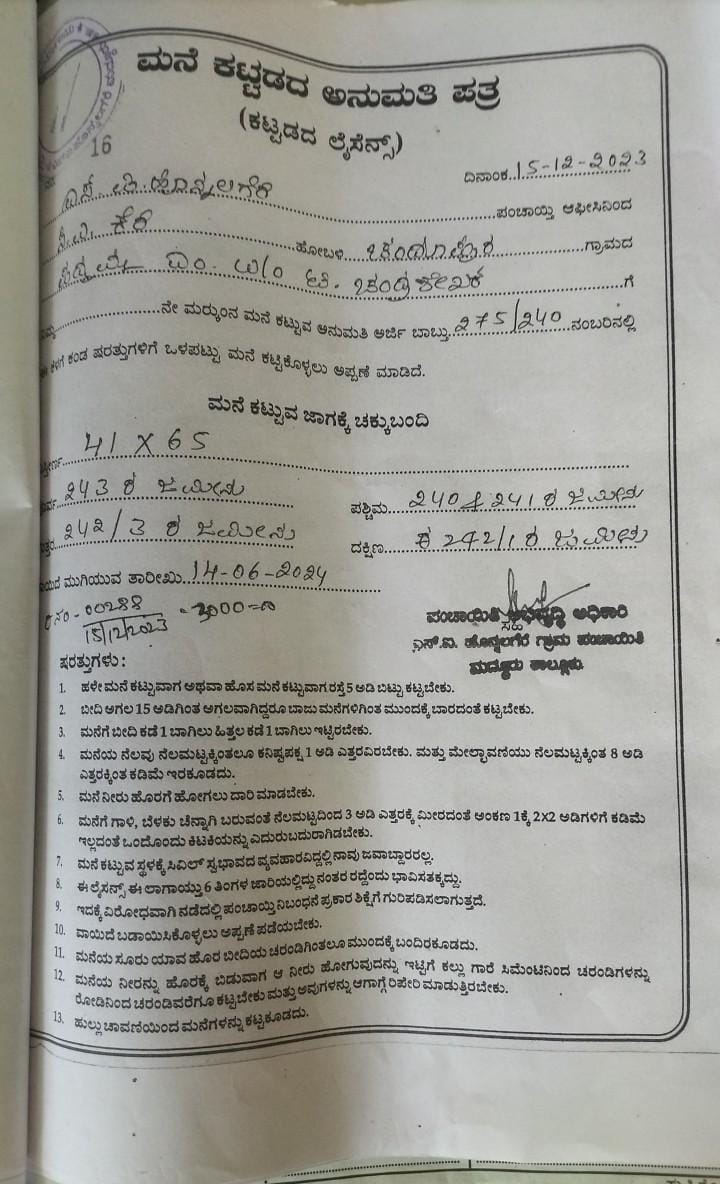 ಮನೆ ಕಟ್ಟಡದ ಅನುಮತಿ ಪತ್ರ
(ಕಟ್ಟಡದ ಲೈಸೆನ್ಸ್)
16
ದಿನಾಂಕ 15-12-2023
ಎಸ್ ಐ ಹೊನ್ನಲಗೆರೆ ಪಂಚಾಯ್ತಿ ಆಫೀಸಿನಿಂದ
ಸಿ.ಎ. ಕೆರೆ ಹೋಬಳಿ ಗ್ರಾಮದ
ಎಂ. W/o ಟಿ. ಚಂದ್ರಶೇಖರ ಗೆ
ನೇ ಮರ್‍ಕುಂನ ಮನೆ ಕಟ್ಟುವ ಅನುಮತಿ ಅರ್ಜಿ ಬಾಬ್ತು 275/240 ನಂಬರಿನಲ್ಲಿ
ಈ ಕೆಳಗೆ ಕಂಡ ಷರತ್ತುಗಳಿಗೆ ಒಳಪಟ್ಟು ಮನೆ ಕಟ್ಟಿಕೊಳ್ಳಲು ಅಪ್ಪಣೆ ಮಾಡಿದೆ.
ಮನೆ ಕಟ್ಟುವ ಜಾಗಕ್ಕೆ ಚಕ್ಕುಬಂದಿ
41 X 65
243 ರ ಜಮೀನು ಪಶ್ಚಿಮ 240 & 241 ರ ಜಮೀನು
242/3 ರ ಜಮೀನು ದಕ್ಷಿಣ 242/1 ರ ಜಮೀನು
ಮುಗಿಯುವ ತಾರೀಖು 14-06-2024
ರ ಸಂ - 00288
15/12/2023
ಪಂಚಾಯಿತಿ ಅಭಿವೃದ್ಧಿ ಅಧಿಕಾರಿ
ಎಸ್.ಐ. ಹೊನ್ನಲಗೆರೆ ಗ್ರಾಮ ಪಂಚಾಯಿತಿ
ಮದ್ದೂರು ತಾಲ್ಲೂಕು.
ಷರತ್ತುಗಳು :
1. ಹಳೇ ಮನೆ ಕಟ್ಟುವಾಗ ಅಥವಾ ಹೊಸ ಮನೆ ಕಟ್ಟುವಾಗ ರಸ್ತೆ 5 ಅಡಿ ಬಿಟ್ಟು ಕಟ್ಟಬೇಕು.
2. ಬೀದಿ ಅಗಲ 15 ಅಡಿಗಿಂತ ಅಗಲವಾಗಿದ್ದರೂ ಬಾಜು ಮನೆಗಳಿಗಿಂತ ಮುಂದಕ್ಕೆ ಬಾರದಂತೆ ಕಟ್ಟಬೇಕು.
3. ಮನೆಗೆ ಬೀದಿ ಕಡೆ 1 ಬಾಗಿಲು ಹಿತ್ತಲ ಕಡೆ 1 ಬಾಗಿಲು ಇಟ್ಟಿರಬೇಕು.
4. ಮನೆಯ ನೆಲವು ನೆಲಮಟ್ಟಕ್ಕಿಂತಲೂ ಕನಿಷ್ಟಪಕ್ಷ 1 ಅಡಿ ಎತ್ತರವಿರಬೇಕು. ಮತ್ತು ಮೇಲ್ಛಾವಣಿಯು ನೆಲಮಟ್ಟಕ್ಕಿಂತ 8 ಅಡಿ
ಎತ್ತರಕ್ಕಿಂತ ಕಡಿಮೆ ಇರಕೂಡದು.
5. ಮನೆ ನೀರು ಹೊರಗೆ ಹೋಗಲು ದಾರಿ ಮಾಡಬೇಕು.
6. ಮನೆಗೆ ಗಾಳಿ, ಬೆಳಕು ಚೆನ್ನಾಗಿ ಬರುವಂತೆ ನೆಲಮಟ್ಟದಿಂದ 3 ಅಡಿ ಎತ್ತರಕ್ಕೆ ಮೀರದಂತೆ ಅಂಕಣ 1ಕ್ಕೆ 2X2 ಅಡಿಗಳಿಗೆ ಕಡಿಮೆ
ಇಲ್ಲದಂತೆ ಒಂದೊಂದು ಕಿಟಕಿಯನ್ನು ಎದುರುಬದುರಾಗಿಡಬೇಕು.
7. ಮನೆ ಕಟ್ಟುವ ಸ್ಥಳಕ್ಕೆ ಸಿವಿಲ್ ಸ್ವಭಾವದ ವ್ಯವಹಾರವಿದ್ದಲ್ಲಿ ನಾವು ಜವಾಬ್ದಾರರಲ್ಲ.
8. ಈ ಲೈಸೆನ್ಸ್ ಈ ಲಾಗಾಯ್ತು 6 ತಿಂಗಳ ಜಾರಿಯಲ್ಲಿದ್ದು ನಂತರ ರದ್ದೆಂದು ಭಾವಿಸತಕ್ಕದ್ದು.
9. ಇದಕ್ಕೆ ವಿರೋಧವಾಗಿ ನಡೆದಲ್ಲಿ ಪಂಚಾಯ್ತಿ ನಿಬಂಧನೆ ಪ್ರಕಾರ ಶಿಕ್ಷೆಗೆ ಗುರಿಪಡಿಸಲಾಗುತ್ತದೆ.
10. ವಾಯಿದೆ ಬಡಾಯಿಸಿಕೊಳ್ಳಲು ಅಪ್ಪಣೆ ಪಡೆಯಬೇಕು.
11. ಮನೆಯ ಸೂರು ಯಾವ ಹೊರ ಬೀದಿಯ ಚರಂಡಿಗಿಂತಲೂ ಮುಂದಕ್ಕೆ ಬಂದಿರಕೂಡದು.
12. ಮನೆಯ ನೀರನ್ನು ಹೊರಕ್ಕೆ ಬಿಡುವಾಗ ಆ ನೀರು ಹೋಗುವುದನ್ನು ಇಟ್ಟಿಗೆ ಕಲ್ಲು ಗಾರೆ ಸಿಮೆಂಟಿನಿಂದ ಚರಂಡಿಗಳನ್ನು
ರೋಡಿನಿಂದ ಚರಂಡಿವರೆಗೂ ಕಟ್ಟಬೇಕು ಮತ್ತು ಅವುಗಳನ್ನು ಆಗಾಗ್ಗೆ ರಿಪೇರಿ ಮಾಡುತ್ತಿರಬೇಕು.
13. ಹುಲ್ಲು ಚಾವಣಿಯಿಂದ ಮನೆಗಳನ್ನು ಕಟ್ಟಕೂಡದು.